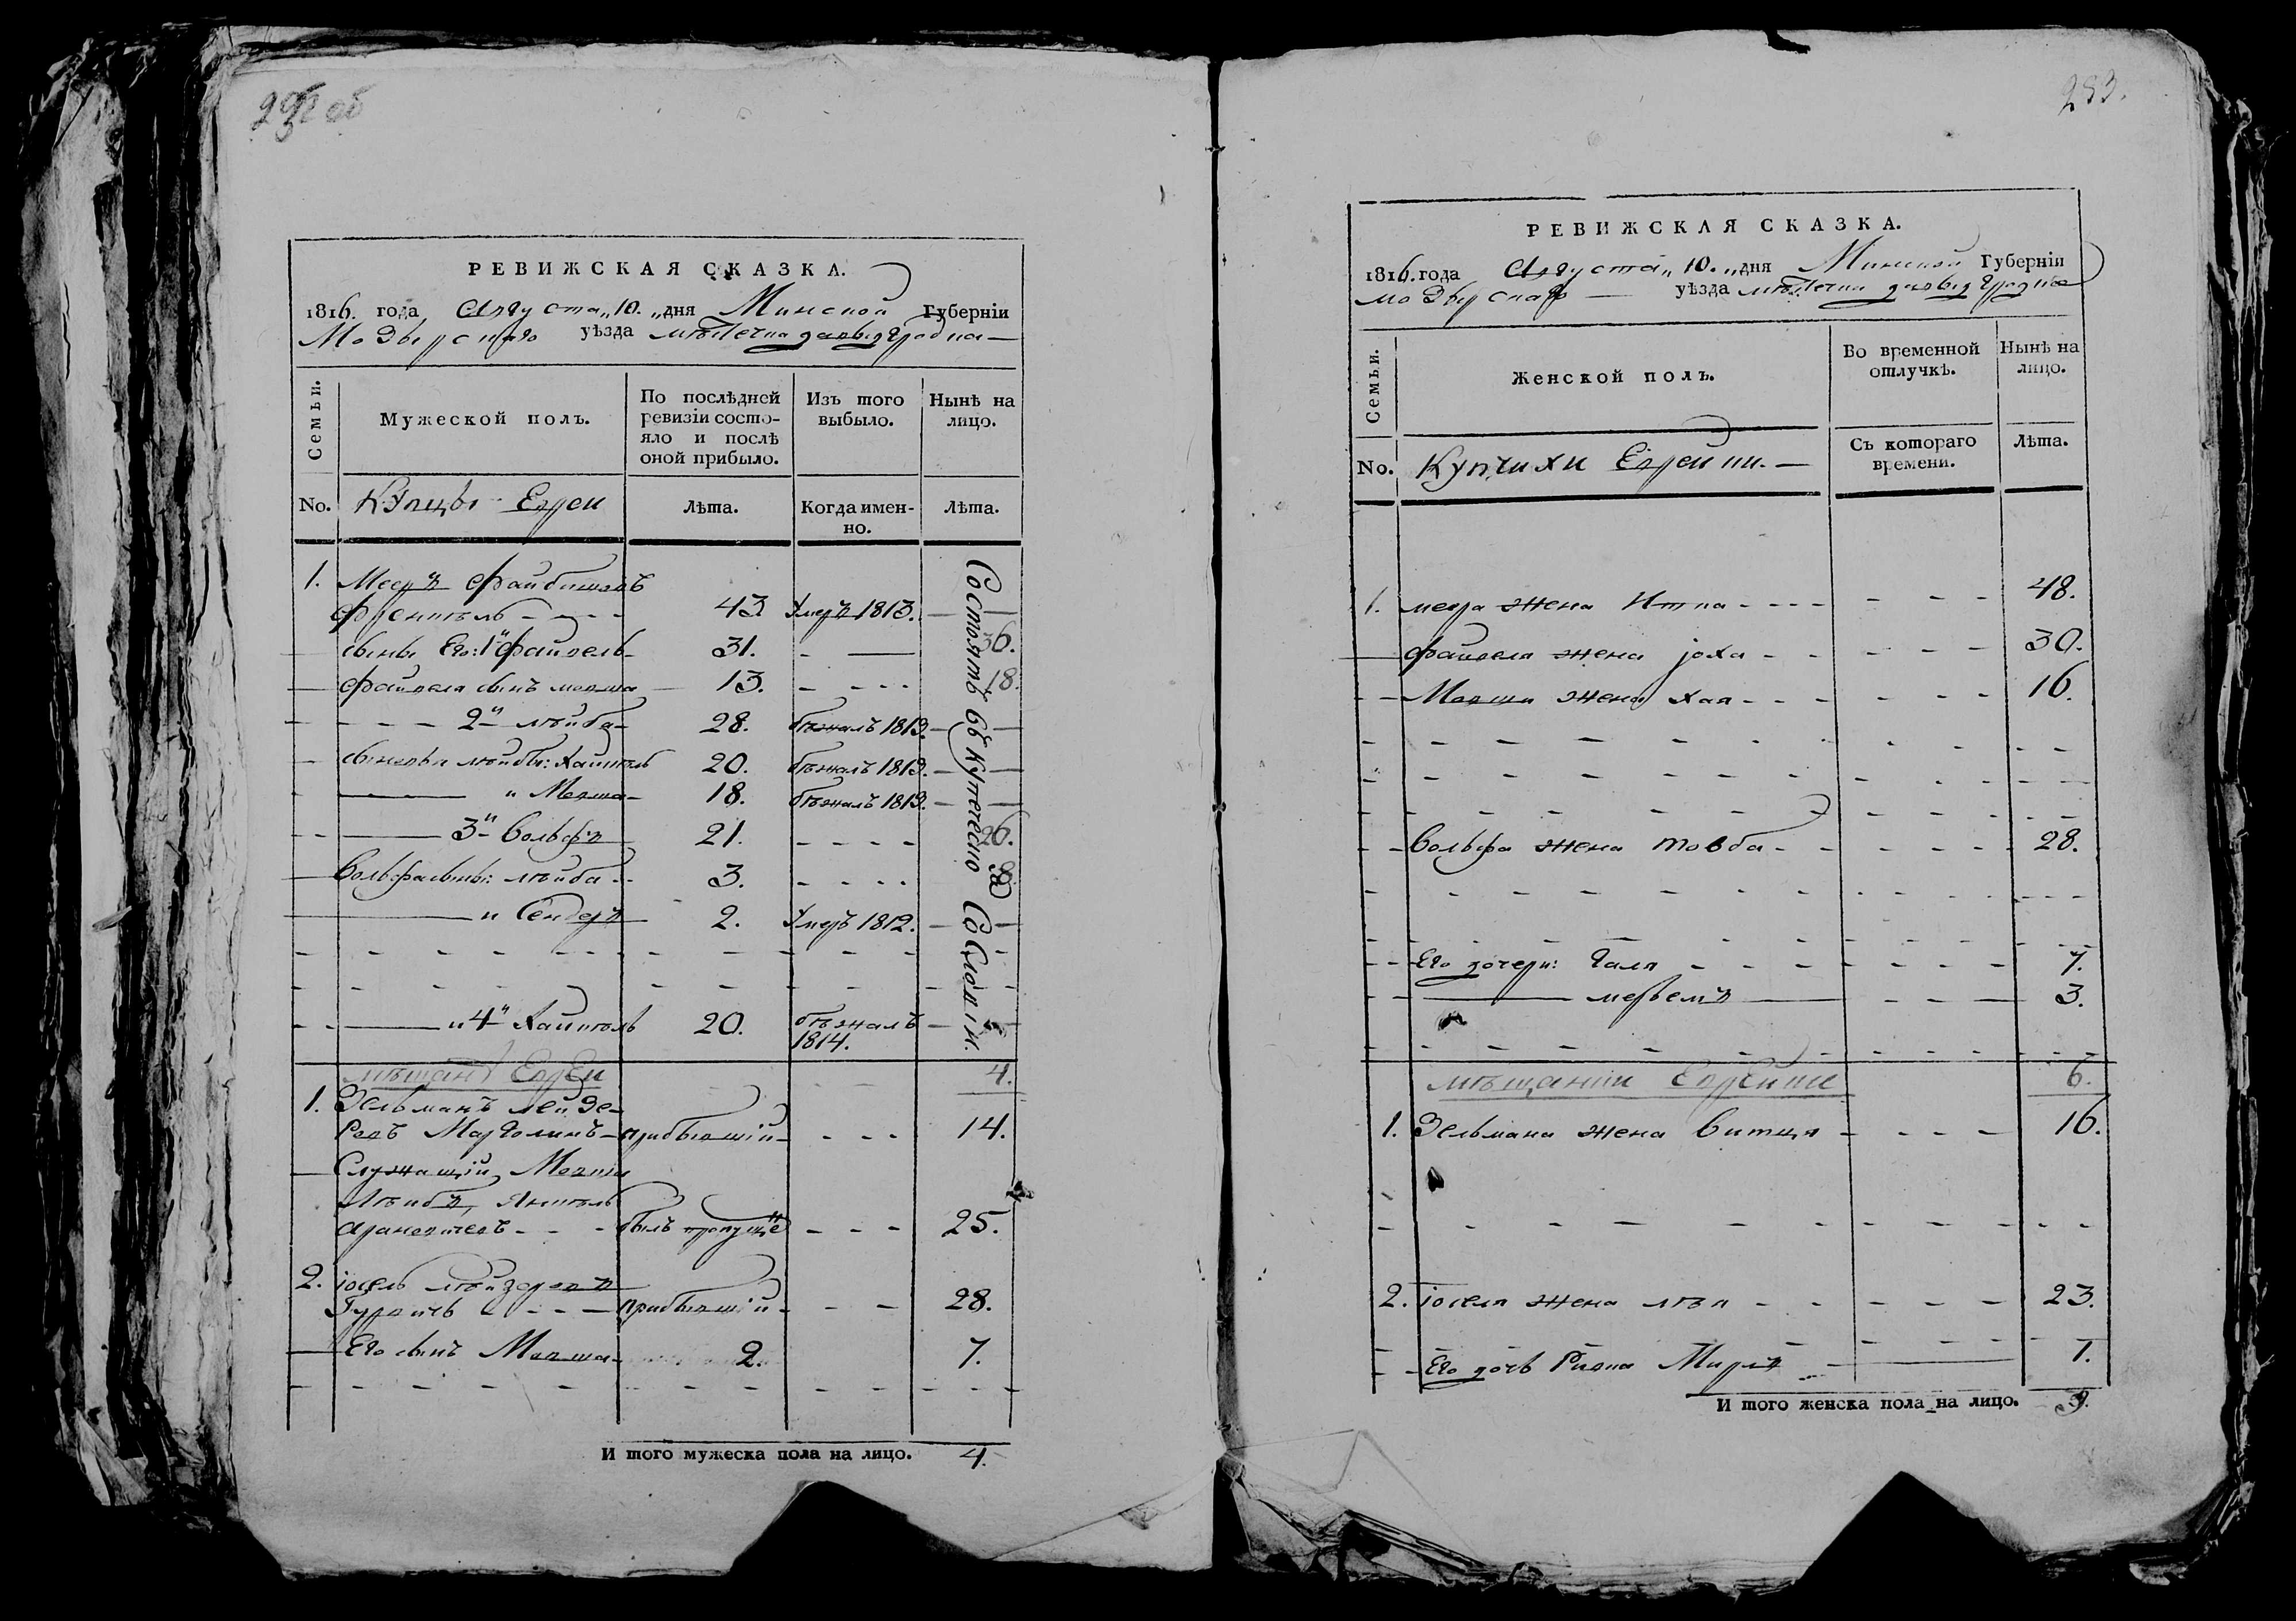 РЕВИЖСКАЯ СКАЗКА.
1816. года Августа „10. „дня Минской Губерніи
Мозырскаго уѣзда мѣстечка давыдградка
Семьи.
Мужеской полъ.
По послѣдней ревизіи состо-
яло и послѣ
оной прибыло.
Изъ того
выбыло.
Нынѣ на
лицо.
No. Купцы Евреи
Лѣта.
Когда имен-
но.
Лѣта.
1. Меэръ Файбишовъ
Френкель 43 Умеръ 1813.
сыны Его: 1й Файвель 31. 36.
Файвеля сынъ мовша 13. 18.
2й лѣйба 28. бѣжалъ 1813.
сыновья лѣйбы: Хаикель 20. бѣжалъ 1813.
и Мовша 18. бѣжалъ 1813.
3й Вольфъ 21. 26.
Вольфа сыны: лѣйба 3. 8
и Сендеръ 2. Умеръ 1812.
и 4й Хаикель 20. бѣжалъ
1814.
Состоятъ въ купеческо Сословіи.
мѣщанѣ Евреи 4.
1. Зельманъ лейзе-
ровъ Марголинъ прибывшій 14.
Служащій Мовша
Аранович былъ 25.
2. іосель лѣйзеровъ
Гурвичь прибывшій 28.
Его сынъ Мовша 2. 7.
И того мужеска пола на лицо. 4.
253.
РЕВИЖСКАЯ СКАЗКА.
1816. года Августа „10. „дня Минской Губерніи
Мозырскаго уѣзда мѣстечка давыдградка
Семьи.
Женской полъ.
Во временной
отлучкѣ.
Нынѣ на
лицо.
No. Купчихи Еврейки.
Съ котораго
времени.
Лѣта.
1. меэра жена Итка 48.
Файвеля жена іоха 30.
Мовши жена хая 16.
Вольфа жена товба 28.
Его дочери: Галя 7.
мерьемъ 3.
мѣщанки Еврейки 6.
1. Зельмана жена Витця 16.
2. іоселя жена лѣя 23.
Его дочь Ривка Миръ 1.
И того женска пола на лицо. 9.